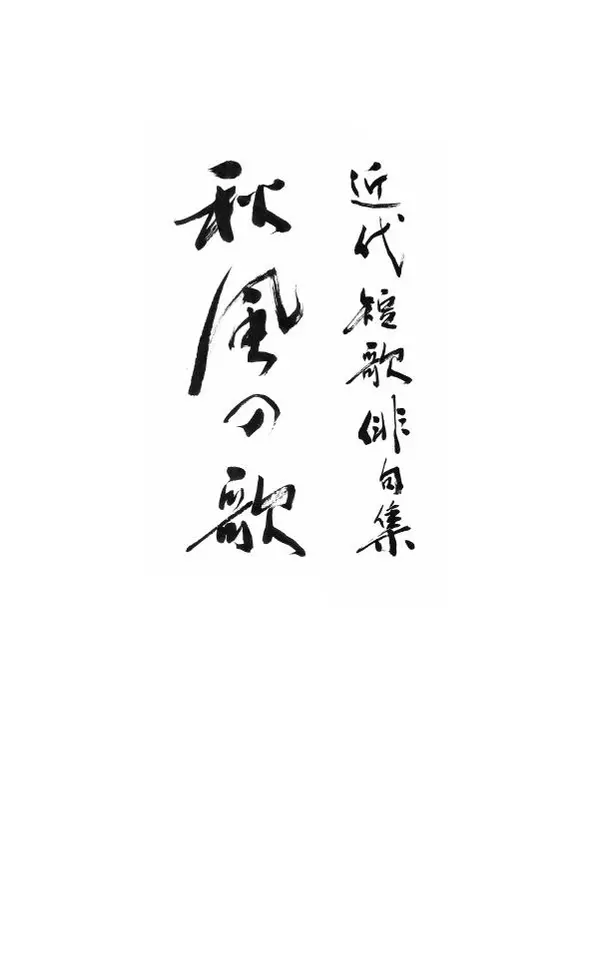 近代短歌俳句集
秋風の歌